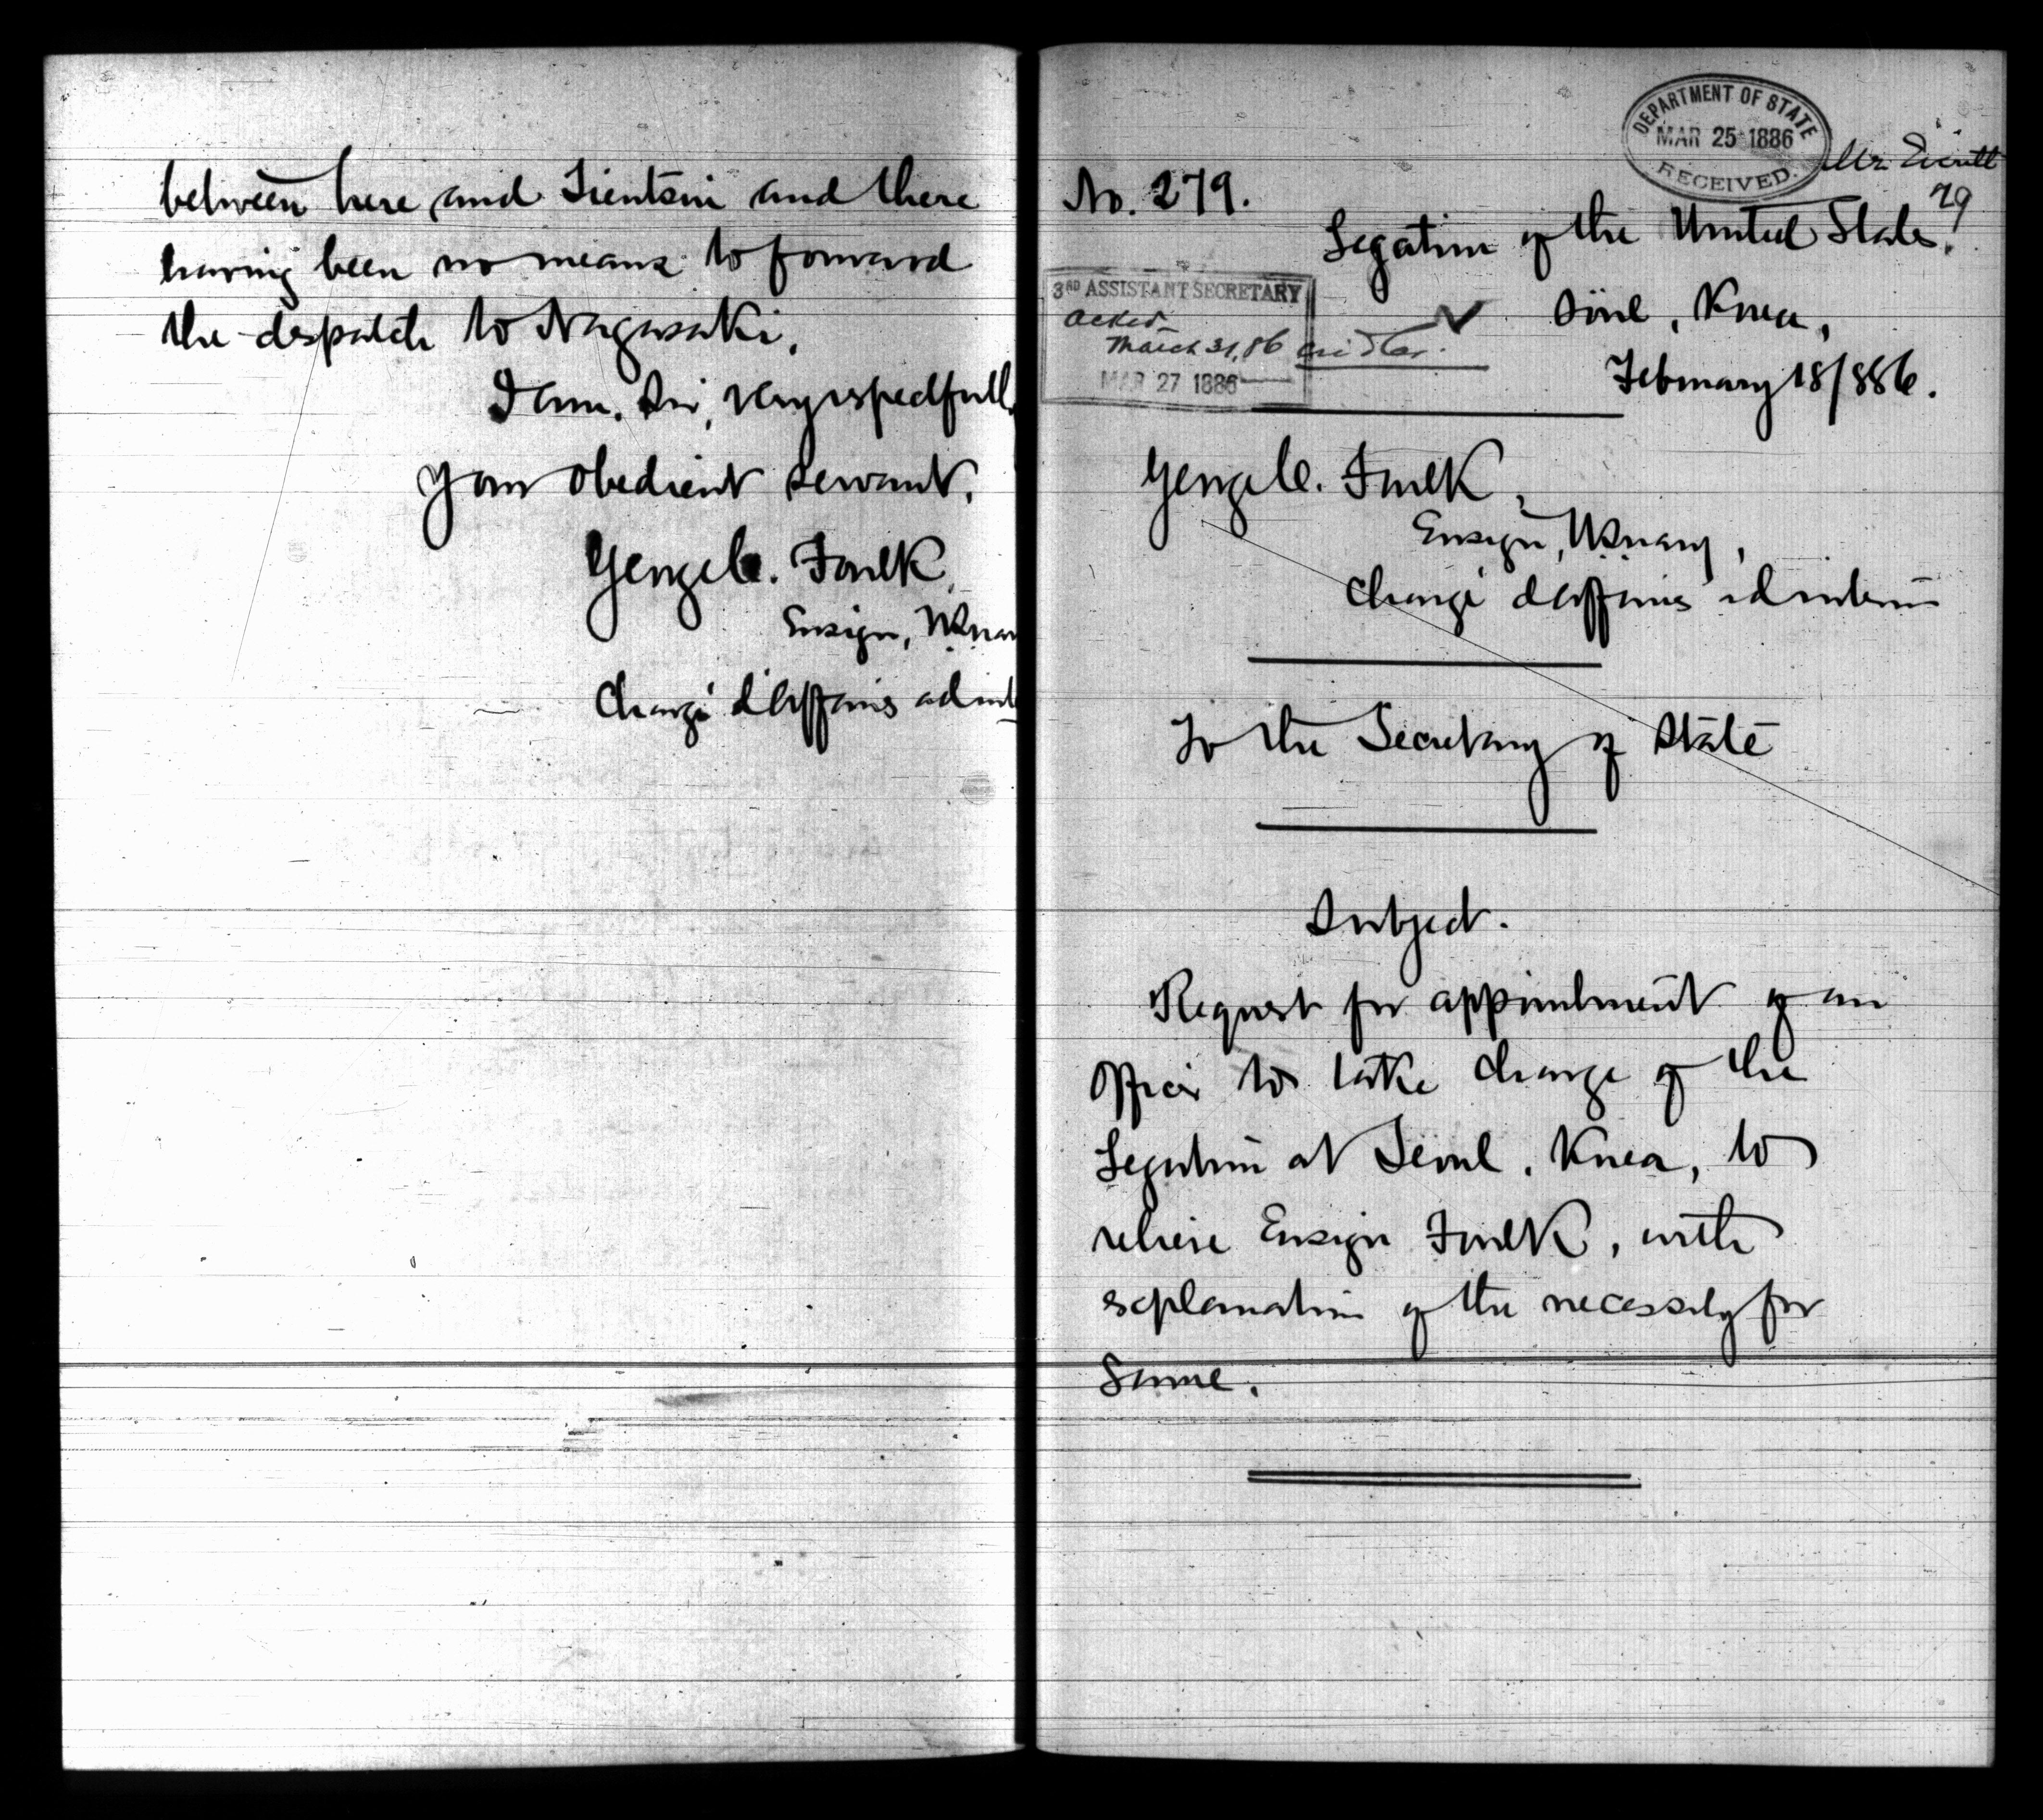 between here and Tientsin and there
having been no means to forward
the despatch to Nagasaki.
I am, Sir, very respectfull
Your obedient servant,
George C. Foulk,
Ensign, U.S. Nav
Chargé d'Affaires ad int
DEPARTMENT OF STATE
MAR 25 1886
RECEIVED.
Mr
29
No. 279.
Legation of the United States,
Söul, Korea,
February 18/886.
3RD ASSISTANT SECRETARY
March 31, 86
MAR 27 1886
George C. Foulk,
Ensign, U.S. Navy,
Chargé d'Affaires ad interim
To the Secretary of State
Subject.
Request for appointment of an
Officer to take charge of the
Legation at Seoul, Korea, to
relieve Ensign Foulk, with
explanation of the necessity for
Same.